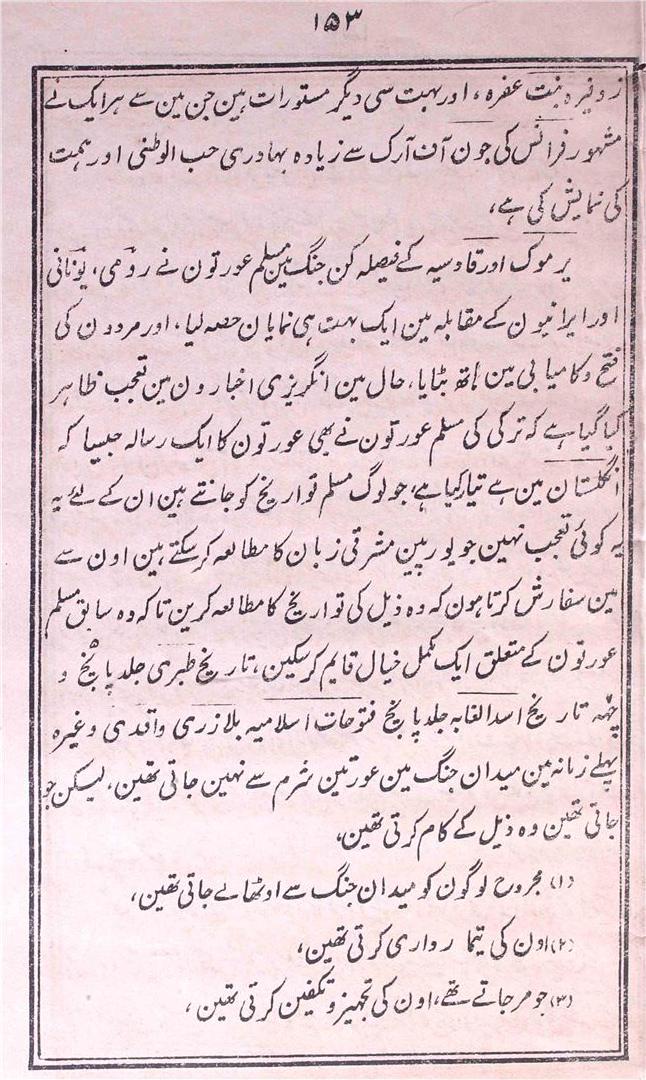 ۱۵۳
زوفیرہ بنت عفرہ، اور بہت سی دیگر مستورات ہین جن مین سے ہر ایک نے
مشہور فرانس کی جون آف آرک سے زیادہ بہادری حب الوطنی اور ہمت
کی نمایش کی ہے،
یرموک اور قادسیہ کے فیصلہ کن جنگ مین مسلم عورتون نے رومی، یونانی
اور ایرانیون کے مقابلہ مین ایک بہت ہی نمایان حصہ لیا، اور مردون کی
فتح و کامیابی مین ہاتھ بٹایا، حال مین انگریزی اخبارون مین تعجب ظاہر
کیا گیا ہے کہ ترکی کی مسلم عورتون نے بھی عورتون کا ایک رسالہ جیسا کہ
انگلستان مین ہے تیار کیا ہے، جو لوگ مسلم تواریخ کو جانتے ہین ان کے لئے یہ
یہ کوئی تعجب نہین جو یورپین مشرقی زبان کا مطالعہ کر سکتے ہین اون سے
مین سفارش کرتا ہون کہ وہ ذیل کی تواریخ کا مطالعہ کرین تاکہ وہ سابق مسلم
عورتون کے متعلق ایک مکمل خیال قایم کر سکین، تاریخ طبری جلد پانچ و
چہہ تاریخ اسد الغابہ جلد پانچ فتوحات اسلامیہ بلازری واقدی وغیرہ
پہلے زمانہ مین میدان جنگ مین عورتین شرم سے نہین جاتی تھین، لیسکن جو
جاتی تھین وہ ذیل کے کام کرتی تھین،
(۱) مجروح لوگون کو میدان جنگ سے اوٹھا لے جاتی تھین،
(۲) اون کی تیمارداری کرتی تھین،
(۳) جو مر جاتے تھے، اون کی تجہیز و تکفین کرتی تھین،